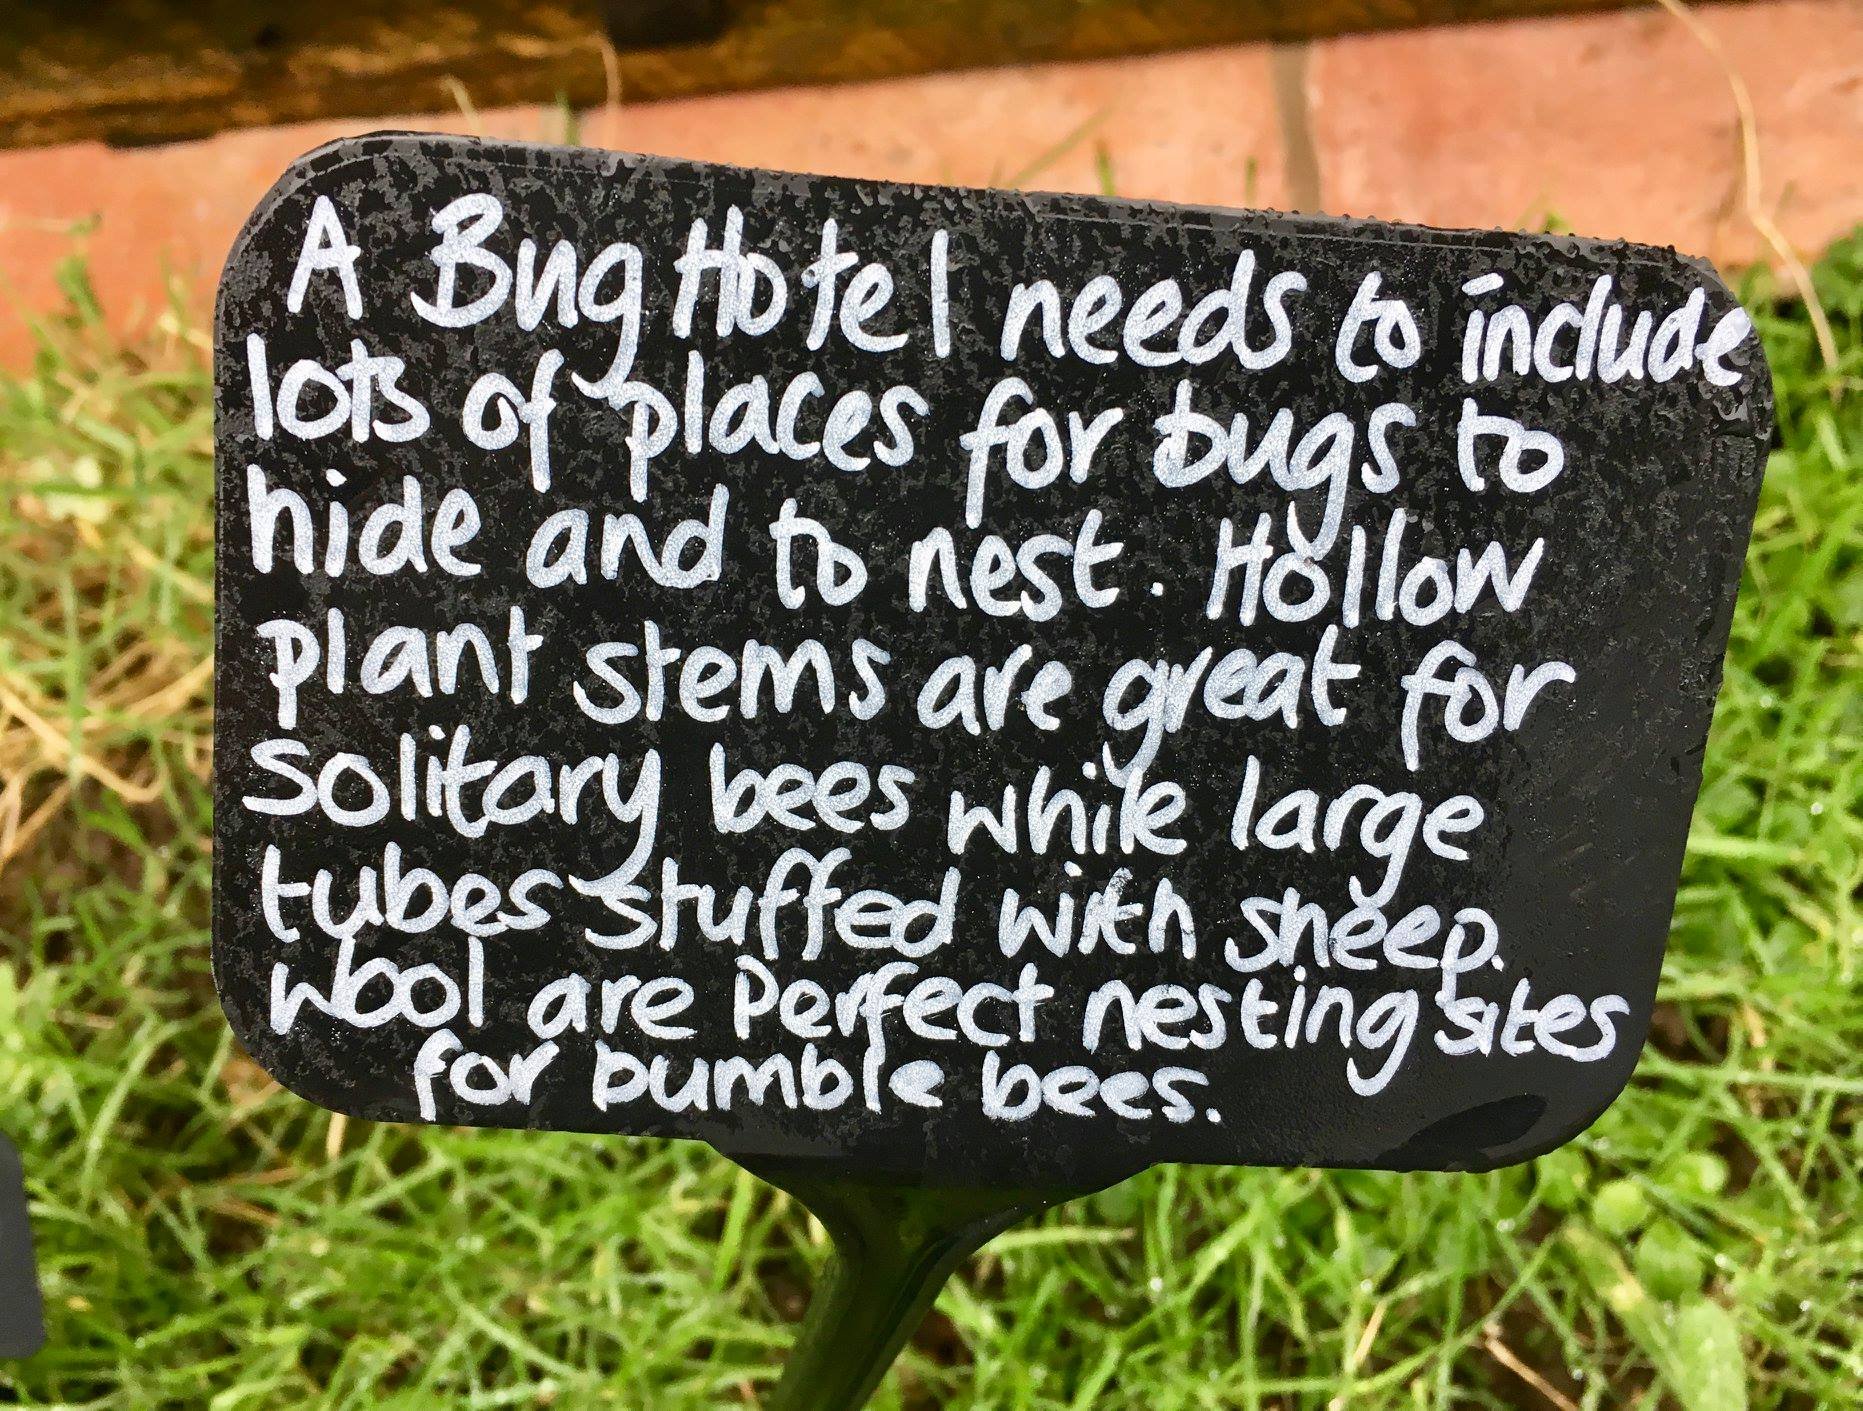 A Bug Hotel needs to include
lots of places for bugs to
hide and to nest. Hollow
plant stems are great for
solitary bees while large
tubes stuffed with sheep.
wool are Perfect nesting sites
for bumble bees.